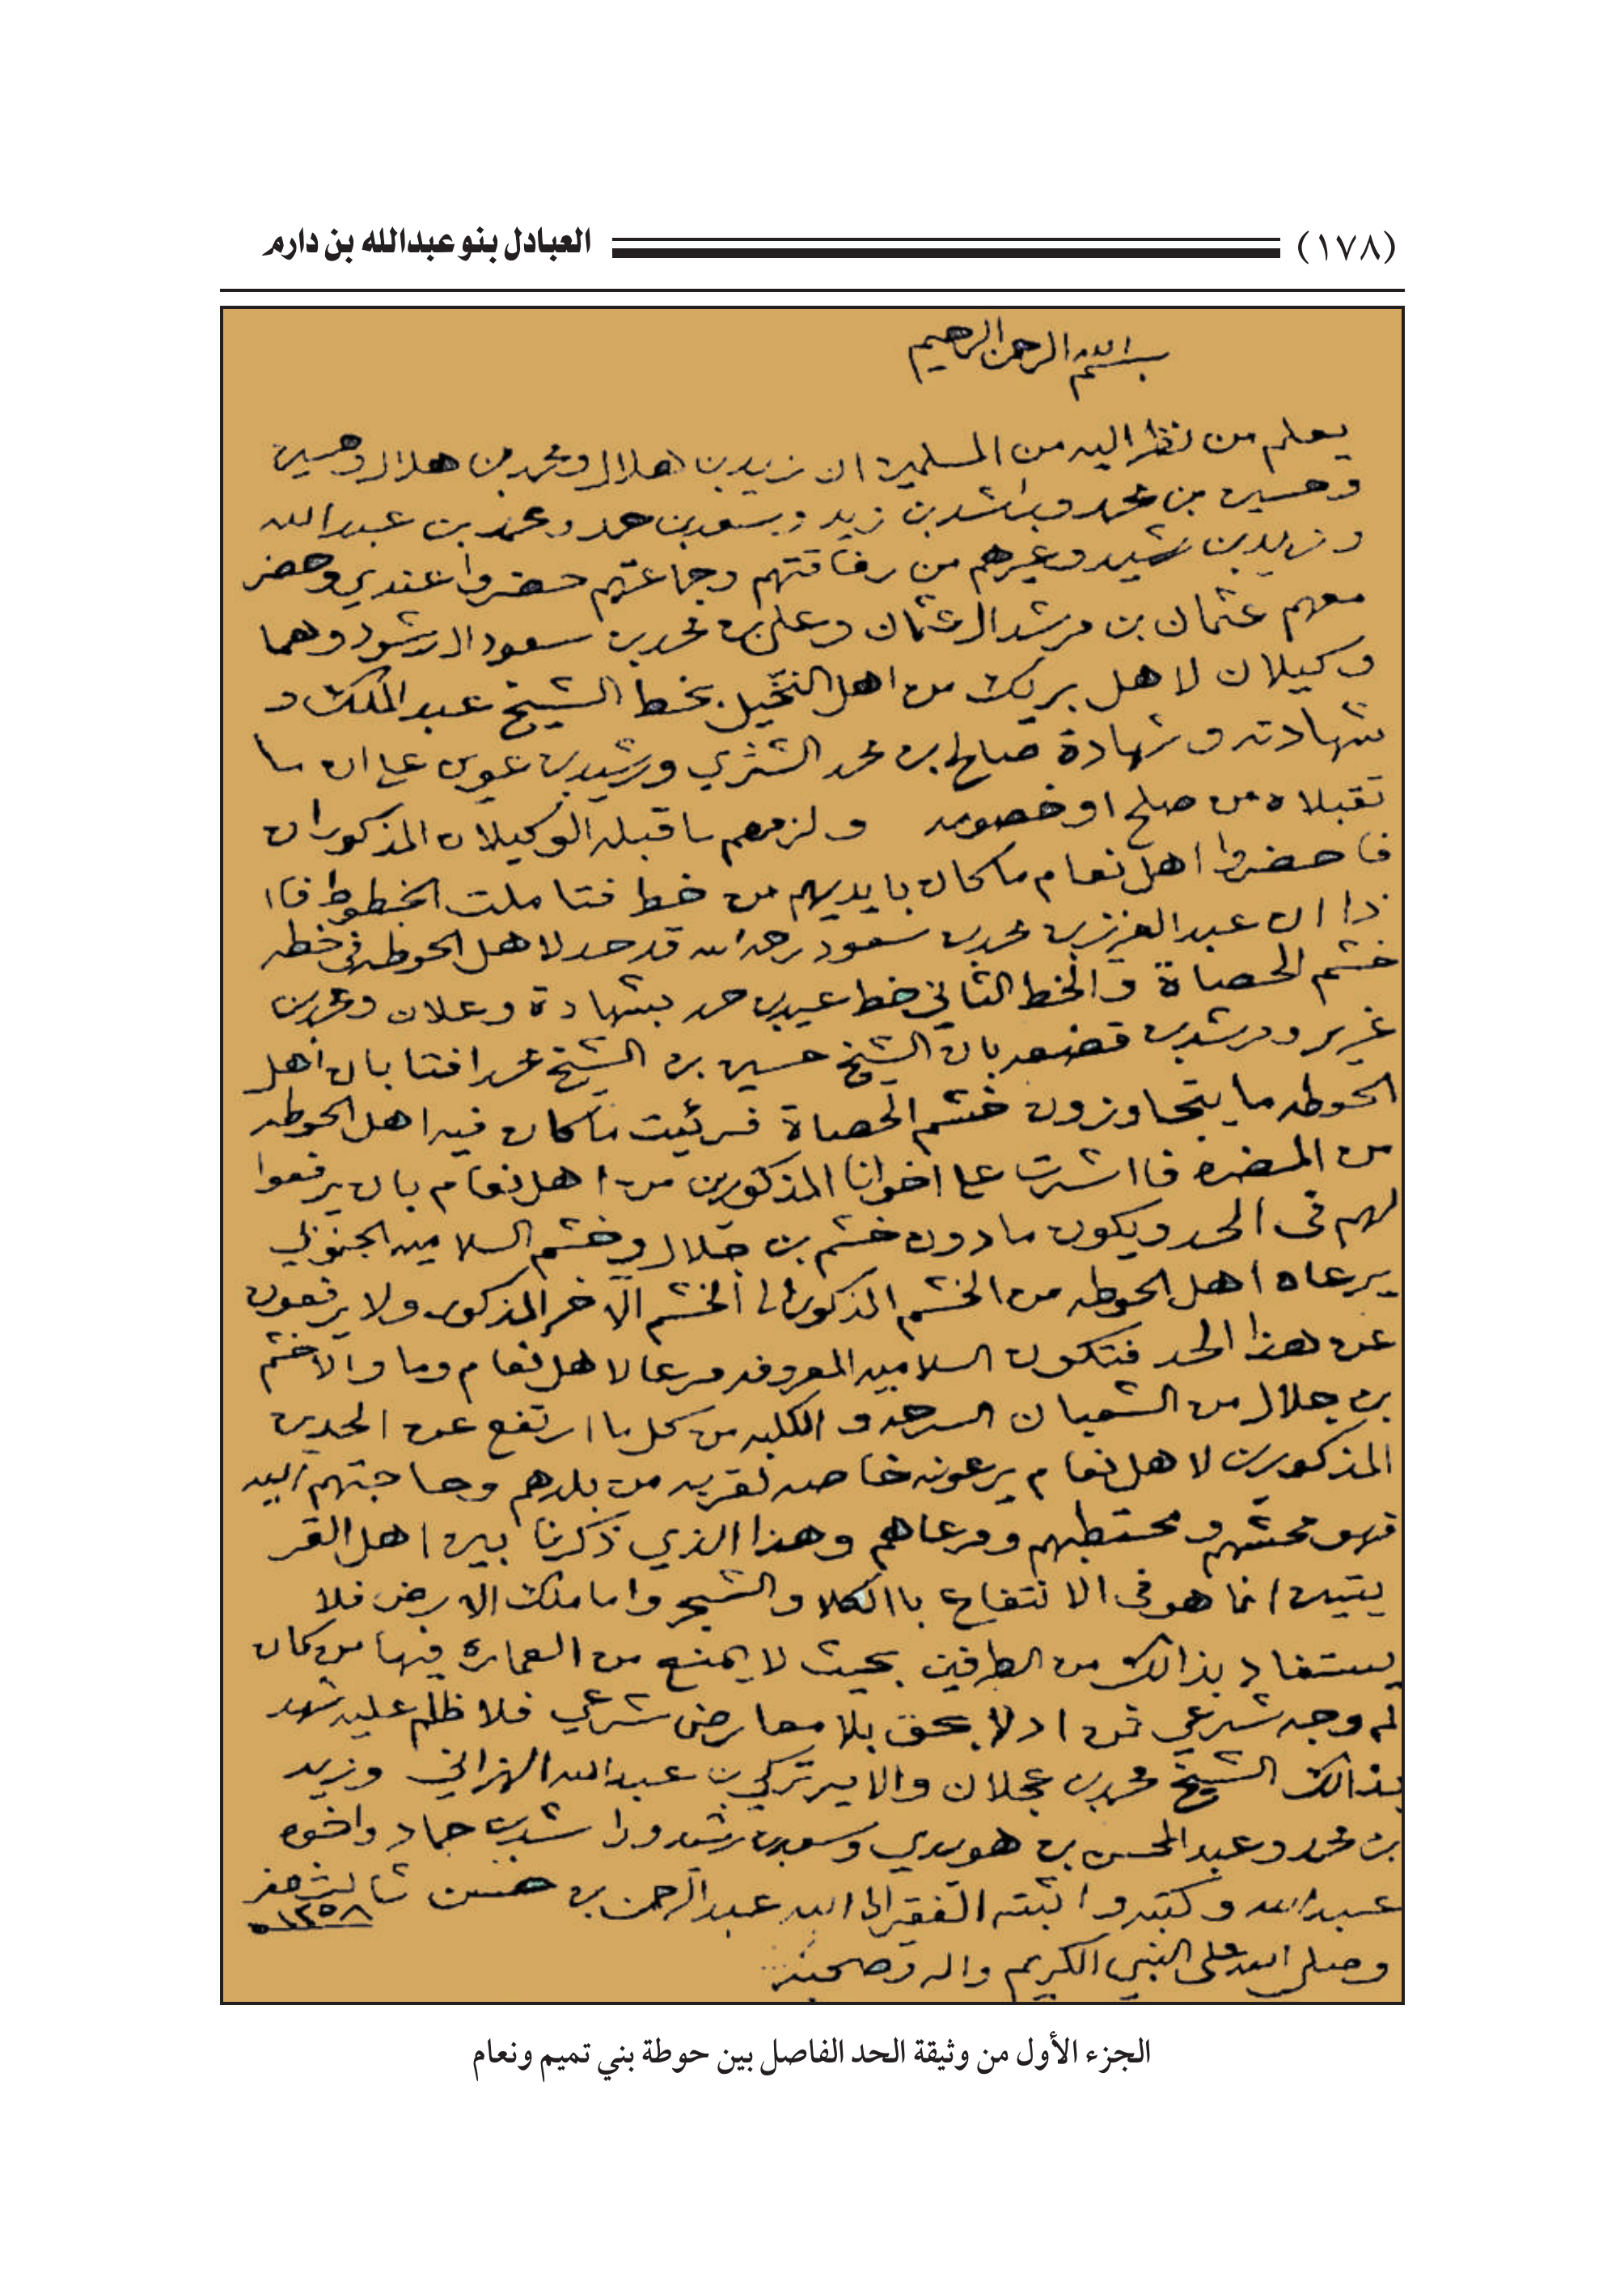 (١٧٨) العبادل بنو عبدالله بن دارم
بسم الله الرحمن الرحيم
يعلم من نظر اليه من المسلمين ان زيد بن هلال ومحمد بن هلال وحسين
وحسين بن محمد وراشد بن زيد وسعد بن حمد ومحمد بن عبدالله
وزيد بن رشيد وغيرهم من رفاقتهم وجماعتهم حضروا عندي وحضر
معهم عثمان بن مرشد ال عثمان وعلي بن محمد بن سعود ال رشود وهما
وكيلان لاهل بريك من اهل النخيل بخط الشيخ عبدالملك و
شهادته وشهادة صالح بن محمد الشثري ورشيد بن عوين على ان ما
تقبلاه من صلح او خصومه ولزمهم ما قبله الوكيلان المذكوران
فاحضروا اهل نعام ما كان بايديهم من خط فتاملت الخطوط فاا
ذا ان عبدالعزيز بن محمد بن سعود رحمه الله قد حد لاهل الحوطه في خطه
خشم الحصاة والخط الثاني خط عيد بن حمد بشهادة وعلان ومحمد بن
غرير ومرشد بن بان الشيخ حسين بن الشيخ محمد افتا بان اهل
الحوطه ما يتجاوزون خشم الحصاة فرئيت ما كان فيه اهل الحوطه
من المضره فااشرت على اخوانا المذكورين من اهل نعام بان يرفعوا
لهم في الحد ويكون ما دون خشم بن جلال وخشم السلاميه الجنوبي
يرعاه اهل الحوطه من الخشم المذكور الى الخشم الاخر المذكور ولا يرفعون
عن هذا الحد فتكون السلاميه المعروفه مرعا لاهل نعام وما والا خشم
بن جلال من الشعبان السرحه والكلبه من كل ما ارتفع عن الحدين
المذكورين لاهل نعام يرعونه خاصه لقربه من بلدهم وحاجتهم اليه
فهو محشهم ومحتطبهم ومرعاهم وهذا الذي ذكرنا بين اهل القر
يتين انما هو في الانتفاع باالكلا والشجر واما ملك الارض فلا
يستفاد بذالك من الطرفين بحيث لا يمنع من العماره فيها من كان
له وجه شرعي فمن ادلا بحق بلا معارض شرعي فلا ظلم عليه شهد
بذالك الشيخ محمد بن عجلان والامير تركي بن عبدالله الهزاني وزيد
بن محمد وعبدالمحسن بن هويدي وسعد بن رشيد وراشد بن حماد واخوه
عبدالله وكتبه واثبته الفقير الى الله عبدالرحمن بن حسن ثالث صفر
١٢٥٨ه
وصلى الله على النبي الكريم واله وصحبه
الجزء الأول من وثيقة الحد الفاصل بين حوطة بني تميم ونعام